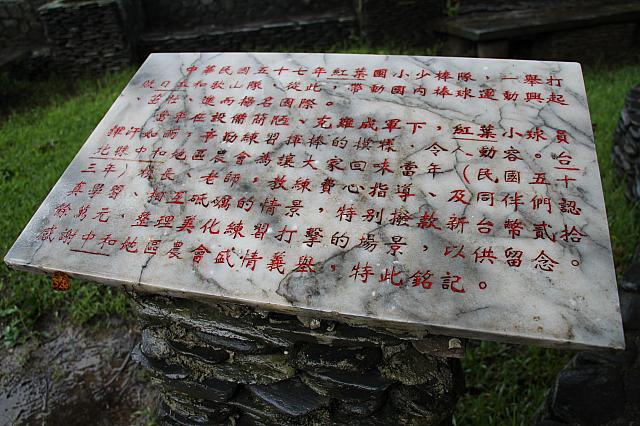 中華民國五十七年紅葉國小少棒隊，一舉打
敗日本和歌山隊，從此，帶動國內棒球運動興起
、茁壯，進而揚名國際。
當年在設備簡陋、克難成軍下，紅葉小球員
揮汗如雨，辛勤練習揮棒的模樣，令人動容。台
北縣中和地區農會為讓大家回來當年（民國五十
三年）校長、老師，教練費心指導、及同伴們認
真學習、相互砥礪的情景，特別撥款新台幣貳拾
餘萬元，整理美化練習打擊的場景，以供留念。
感謝中和地區農會盛情義舉，特此銘記。